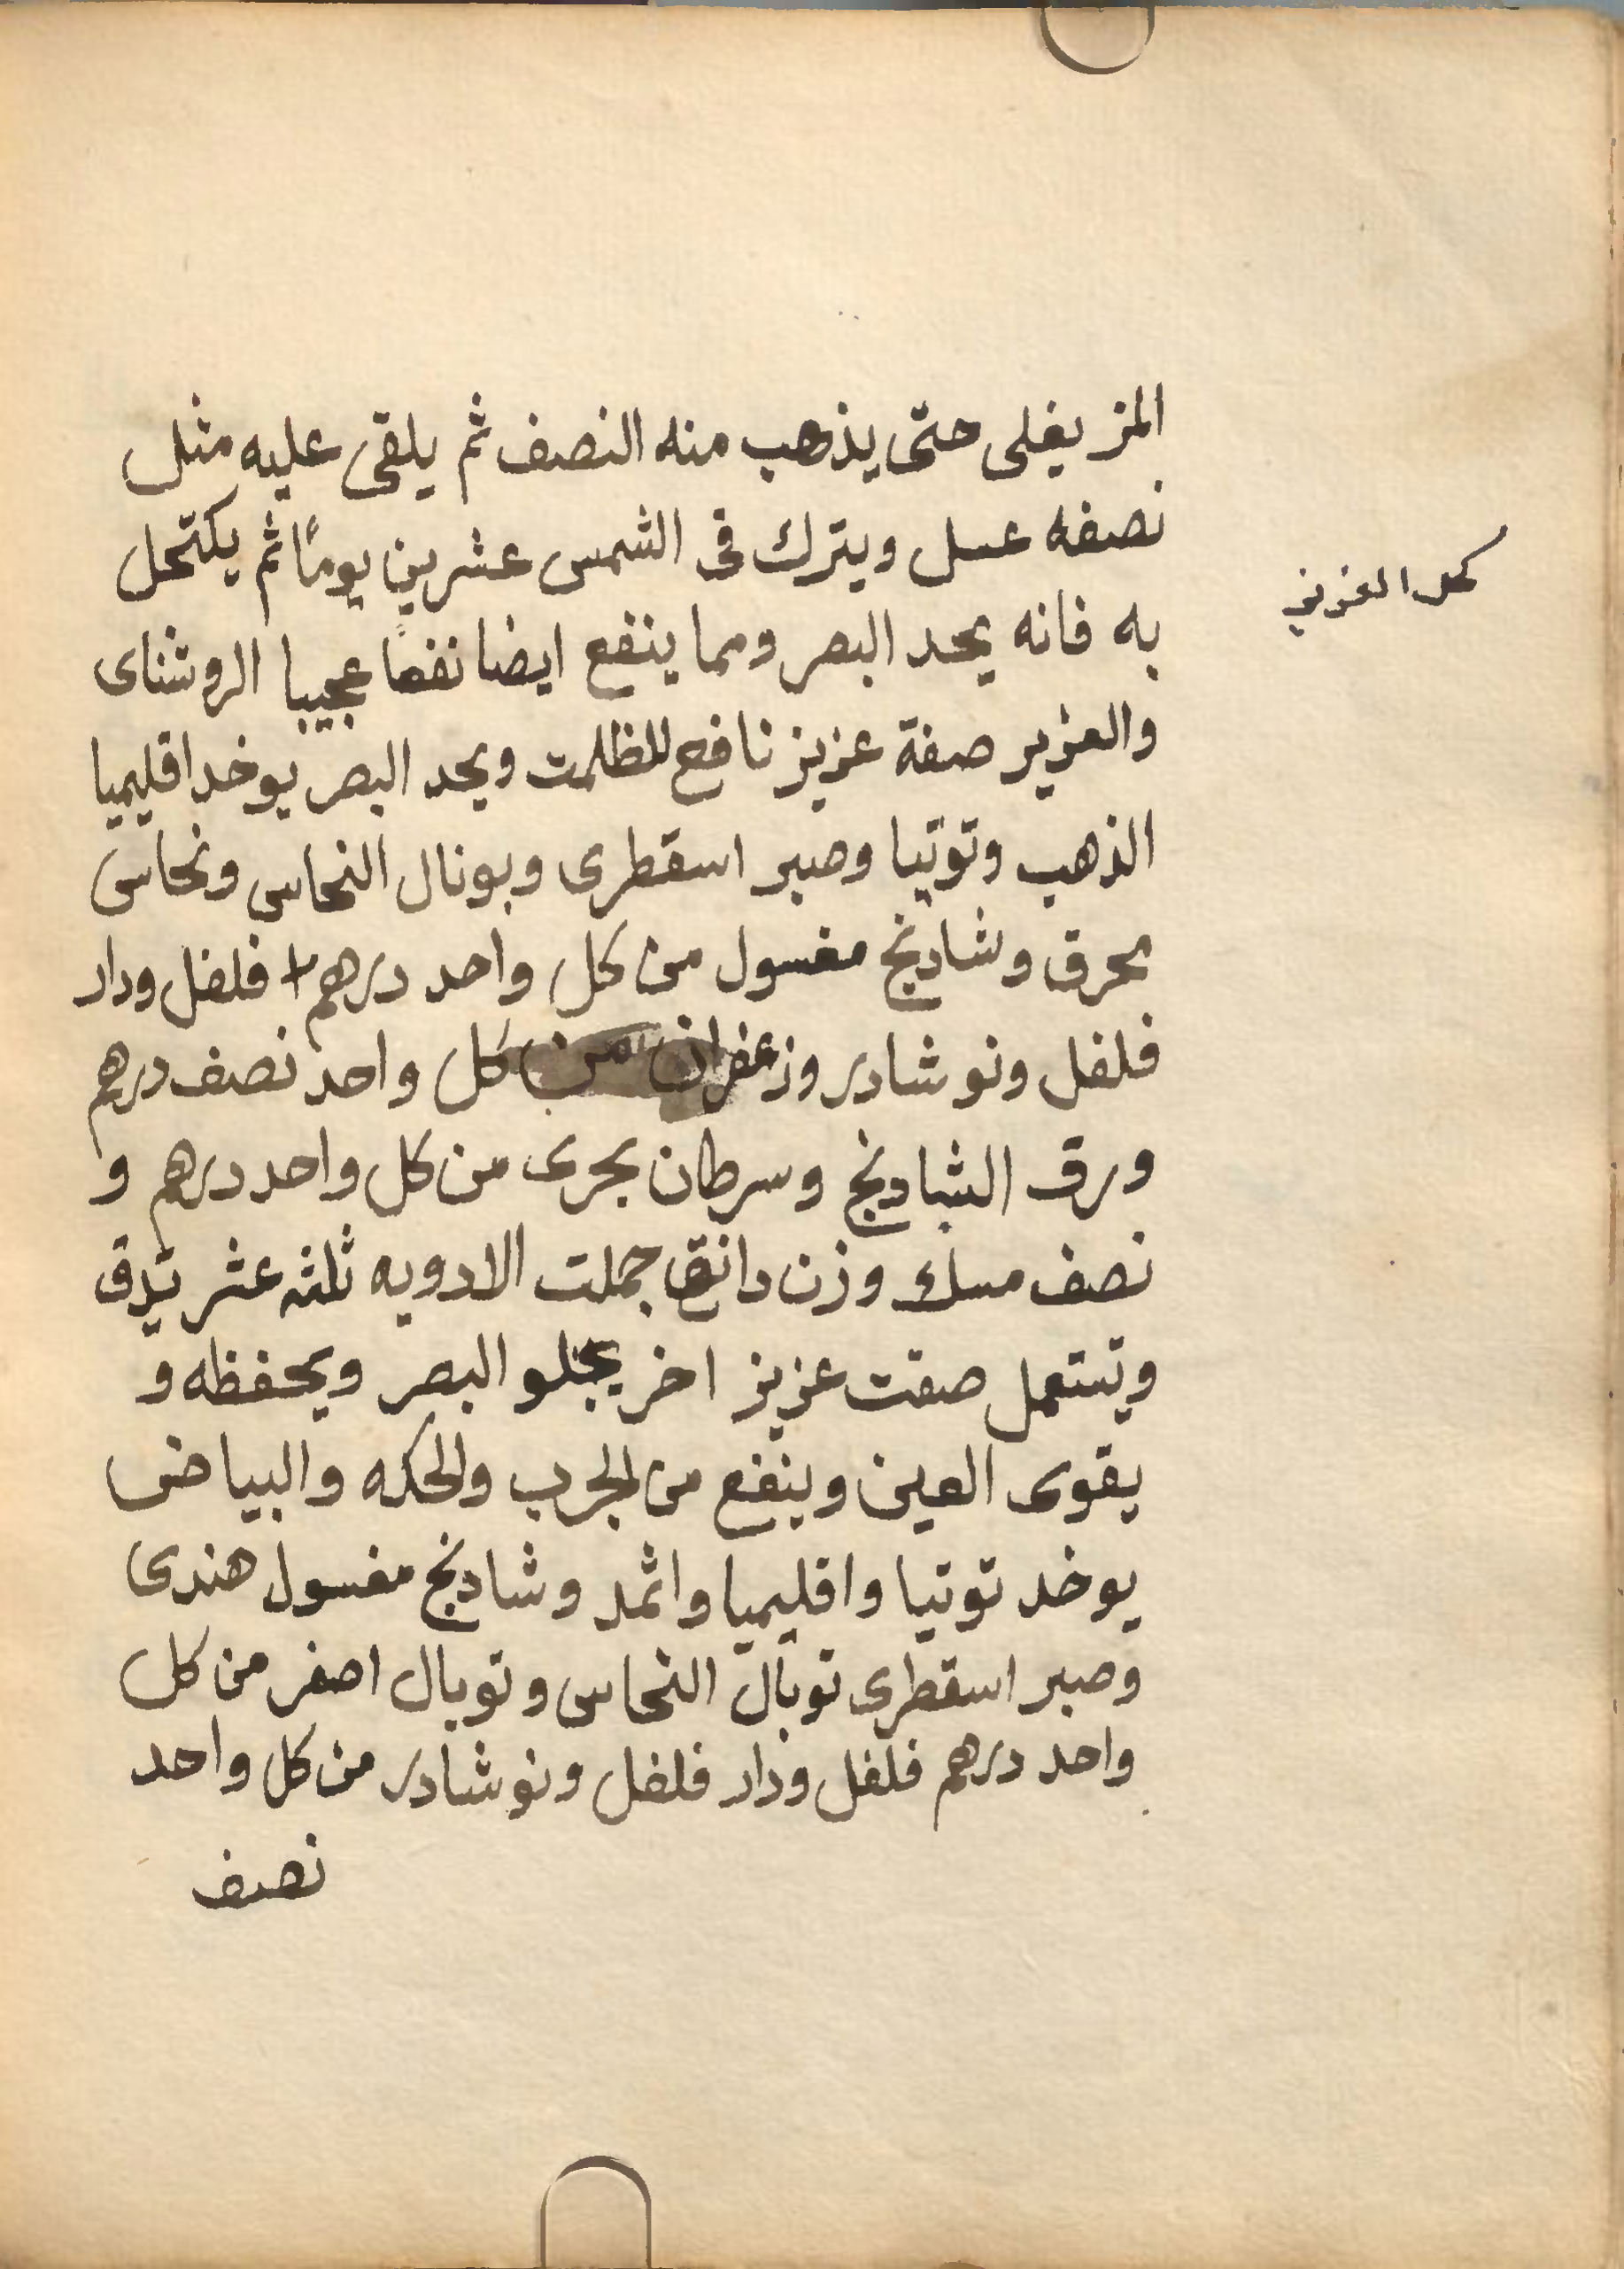 المز يغلى حتى يذهب منه النصف ثم يلقى عليه مثل
نصفه عسل ويترك فى الشمس عشرين يومًا ثم يكتحل
كحل العزيز
به فانه يحد البصر ومما ينفع ايضا نفعًا عجيبا الروشناى
والعزيز صفة عزيز نافع للظلمت ويحد البصر يوخد اقليميا
الذهب وتوتيا وصبر اسقطرى وبونال النحاس ونحاس
محرق وشادنج مغسول من كل واحد درهم فلفل ودار
فلفل ونوشادر وزعفران من كل واحد نصف درهم
ورق الشادنج وسرطان بحرى من كل واحد درهم و
نصف مسك وزن دانق جملت الادويه ثلثه عشر تدق
وتستعمل صفت عزيز اخر يجلو البصر ويحفظه و
يقوى العين وينفع من الجرب والحكه والبياض
يوخد توتيا واقليميا واثمد وشادنج مغسول هندى
وصبر اسقطرى توبال النحاس وتوبال اصفر من كل
واحد درهم فلفل ودار فلفل ونوشادر من كل واحد
نصف